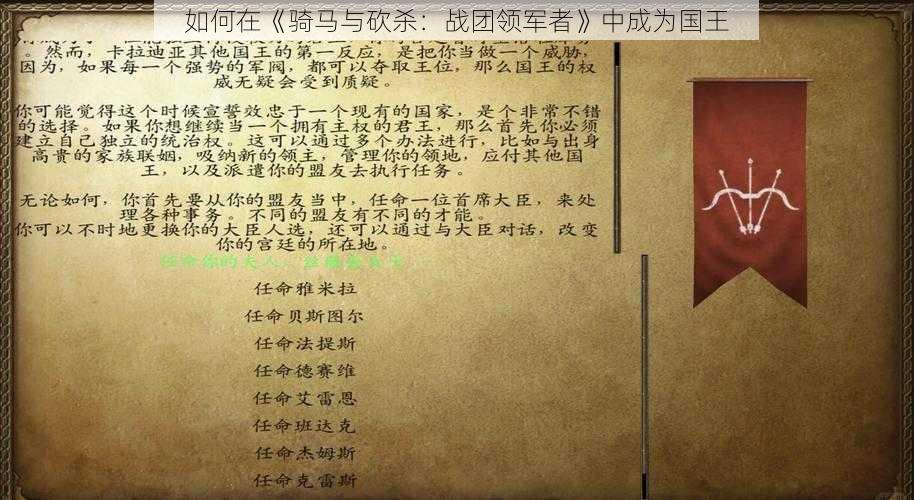 如何在《骑马与砍杀：战团领军者》中成为国王
。然而，卡拉迪亚其他国王的第一反应，是把你当做一个威胁，
因为，如果每一个强势的军阀，都可以夺取王位，那么国王的权
威无疑会受到质疑。
你可能觉得这个时候宣誓效忠于一个现有的国家，是个非常不错
的选择。如果你想继续当一个拥有主权的君王，那么首先你必须
建立自己独立的统治权。这可以通过多个办法进行，比如与出身
高贵的家族联姻，吸纳新的领主，管理你的领地，应付其他国
王，以及派遣你的盟友去执行任务。
无论如何，你首先要从你的盟友当中，任命一位首席大臣，来处
理各种事务。不同的盟友有不同的才能。
你可以不时地更换你的大臣人选，还可以通过与大臣对话，改变
你的宫廷的所在地。
任命你的夫人，
任命雅米拉
任命贝斯图尔
任命法提斯
任命德赛维
任命艾雷恩
任命班达克
任命杰姆斯
任命克雷斯